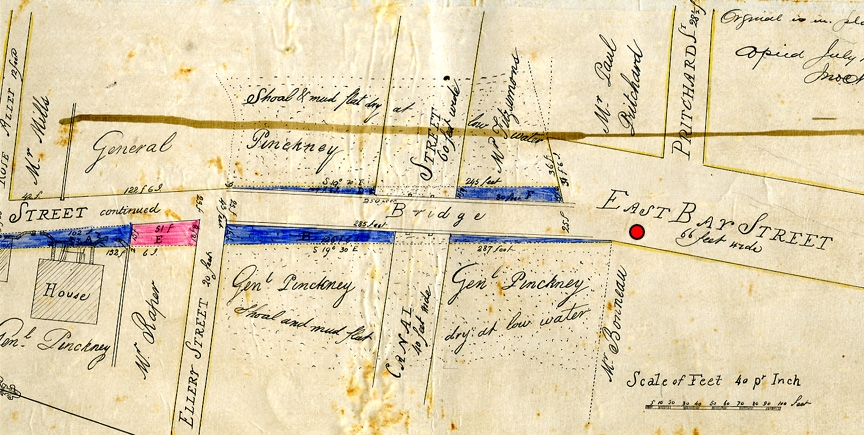 Original is in
Copied July
PRITCHARD ST
Mr Paul
Pritchard
Mr Fitzsimons
STREET
60 feet wide
Shoal & mud flat dry at
low water
Pinckney
General
Mr Mills
ROSE ALLEY
STREET continued
128f 6I
245 feet
Bridge
EAST BAY STREET
66 feet wide
51 f
E
132f 6I
285 feet
S 19° 30 E
287 feet
House
Genl. Pinckney
Mr Raper
ELLERY STREET 20 feet
Genl. Pinckney
Shoal and mud flat
CANAL
40 feet wide
Genl. Pinckney
dry at low water
Mr Bonneau
Scale of Feet 40 pr Inch
5 10 20 30 40 50 60 70 80 90 100 feet